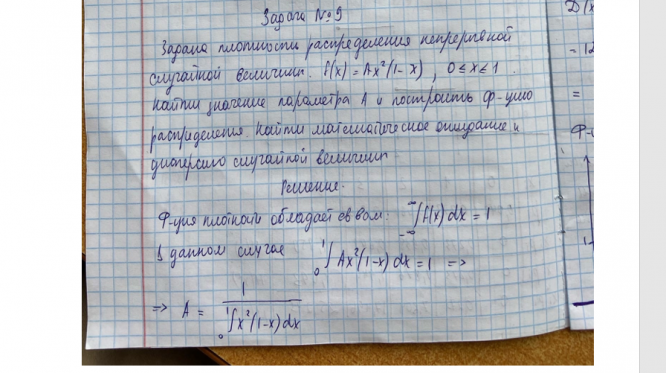 Задача №9
Задана плотность распределения непрерывной
случайной величины. f(x) = Ax²(1-x), 0≤x≤1.
Найти значение параметра A и построить ф-цию
распределения. Найти математическое ожидание и
дисперсию случайной величины
Решение.
Ф-ция плотности обладает св-вом: ∫_{-∞}^{∞} f(x)dx = 1
В данном случае ∫_0^1 Ax²(1-x)dx = 1 =>
=> A = 1 / ∫_0^1 x²(1-x)dx
D(x
= 12
=
Ф-